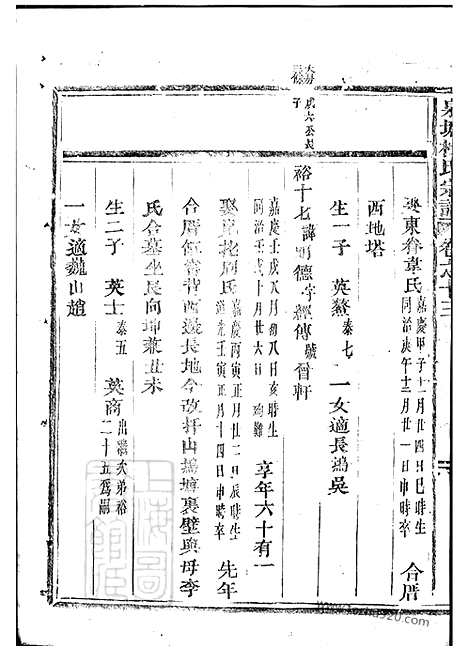 泉塘楊氏宗譜 卷之十三
娶東眷韋氏 嘉慶甲子十一月廿四日巳時生
同治庚午十二月廿一日申時卒 合厝
西地塔
生一子 英鰲 泰七 一女適長鴻吳
裕十七 諱明德字經傳號晉軒
嘉慶壬戌八月初八日亥時生
同治壬戌十月廿六日 殉難 享年六十有一
娶 周氏 嘉慶丙寅正月廿二日辰時生
道光壬寅正月十四日申時卒 先年
合厝 背西邊長地今改扦山塢塘裏壁與母李
氏合墓坐艮向坤兼丑未
生二子 英士 泰五 英商 出繼次弟裕
二十五爲嗣
一女適巍山趙
www.jiapu920.com